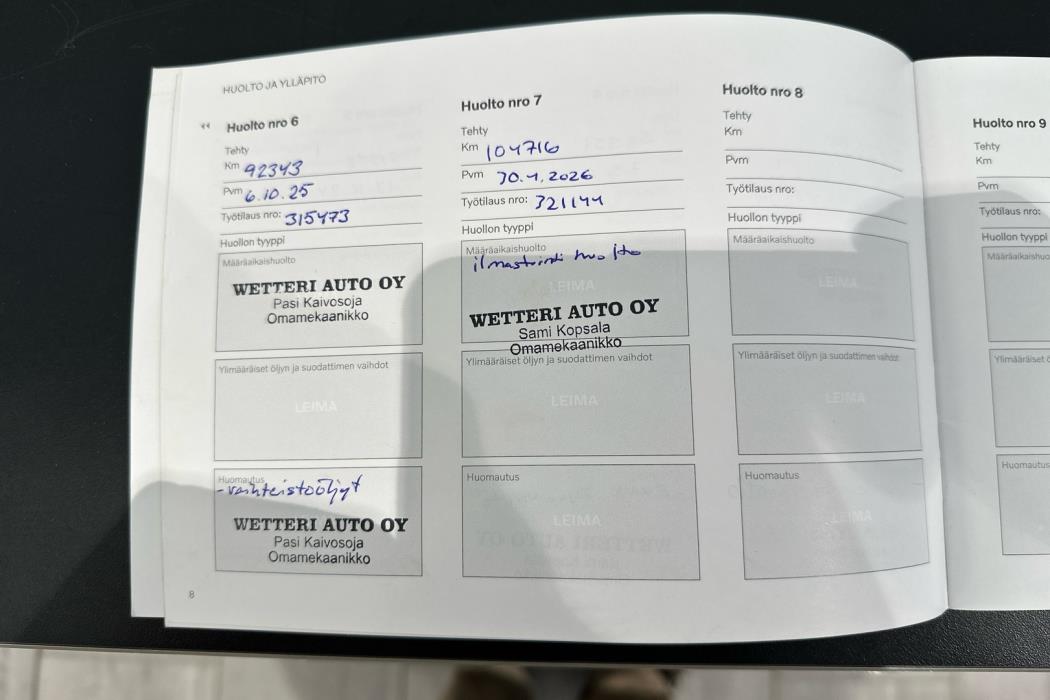 HUOLTO JA YLLÄPITO
Huolto nro 6
Tehty
Km 92343
Pvm 6.10.25
Työtilaus nro: 315473
Huollon tyyppi
Määräaikaishuolto
WETTERI AUTO OY
Pasi Kaivosoja
Omamekaanikko
Ylimääräiset öljyn ja suodattimen vaihdot
LEIMA
Huomautus
-vaihteistoöljyt
WETTERI AUTO OY
Pasi Kaivosoja
Omamekaanikko
8
Huolto nro 7
Tehty
Km 104716
Pvm 30.4.2026
Työtilaus nro: 321144
Huollon tyyppi
Määräaikaishuolto
ilmastointi huolto
LEIMA
WETTERI AUTO OY
Sami Kopsala
Omamekaanikko
Ylimääräiset öljyn ja suodattimen vaihdot
LEIMA
Huomautus
LEIMA
Huolto nro 8
Tehty
Km
Pvm
Työtilaus nro:
Huollon tyyppi
Määräaikaishuolto
LEIMA
Ylimääräiset öljyn ja suodattimen vaihdot
LEIMA
Huomautus
LEIMA
Huolto nro 9
Tehty
Km
Pvm
Työtilaus nro:
Huollon tyyppi
Määräaikaishuo
Ylimääräiset ö
Huomautus